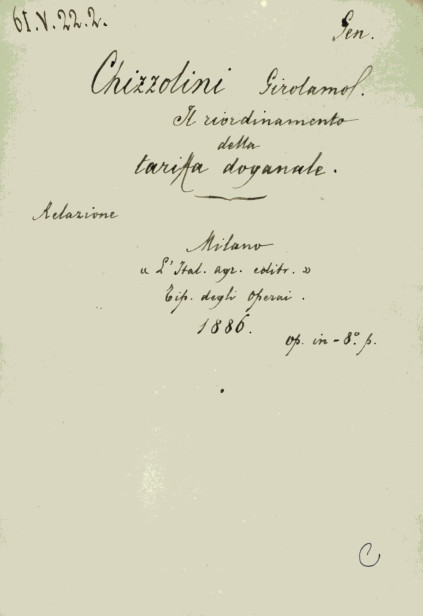 61.V.22.2.
Gen.
Chizzolini Girolamo.
Il riordinamento
della
tariffa doganale.
Relazione
Milano
« L'Ital. agr. editr. »
Tip. degli Operai.
1886.
op. in-8.° p.
C